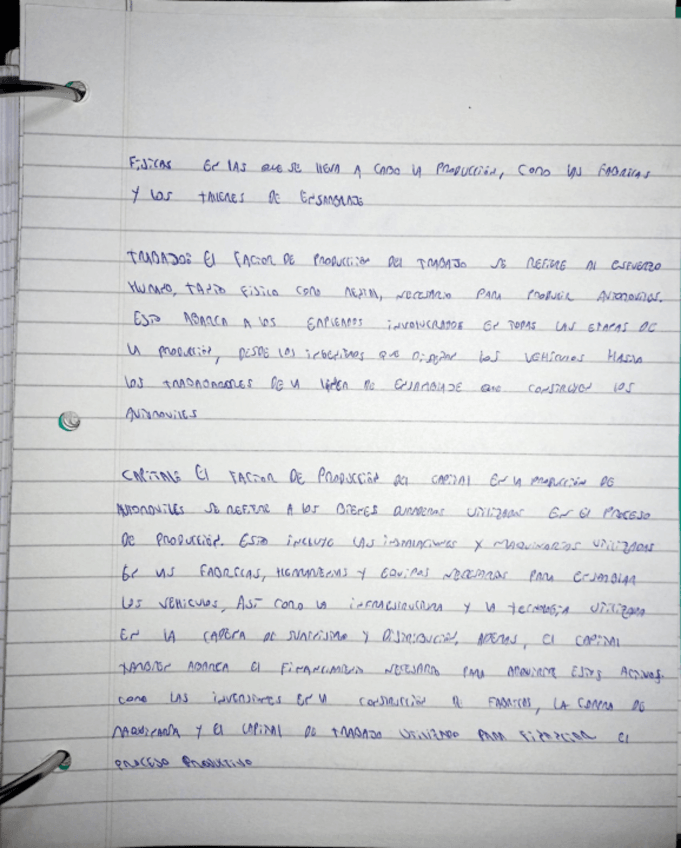 FISICAS EN LAS QUE SE LLEVA A CABO LA PRODUCCIÓN, COMO LAS FABRICAS
Y LOS TALLERES DE ENSAMBLAJE
TRABAJO: EL FACTOR DE PRODUCCIÓN DEL TRABAJO SE REFIERE AL ESFUERZO
HUMANO, TANTO FISICO COMO MENTAL, NECESARIO PARA PRODUCIR AUTOMOVILES.
ESTO ABARCA A LOS EMPLEADOS INVOLUCRADOS EN TODAS LAS ETAPAS DE
LA PRODUCCIÓN, DESDE LOS INGENIEROS QUE DISEÑAN LOS VEHICULOS HASTA
LOS TRABAJADORES DE LA LINEA DE ENSAMBLAJE QUE CONSTRUYEN LOS
AUTOMOVILES
CAPITAL: EL FACTOR DE PRODUCCIÓN DEL CAPITAL EN LA PRODUCCIÓN DE
AUTOMOVILES SE REFIERE A LOS BIENES DURADEROS UTILIZADOS EN EL PROCESO
DE PRODUCCIÓN. ESTO INCLUYE LAS INSTALACIONES Y MAQUINARIAS UTILIZADAS
EN LAS FABRICAS, HERRAMIENTAS Y EQUIPOS NECESARIOS PARA ENSAMBLAR
LOS VEHICULOS, ASÍ COMO LA INFRAESTRUCTURA Y LA TECNOLOGIA UTILIZADA
EN LA CADENA DE SUMINISTRO Y DISTRIBUCIÓN, ADEMAS, EL CAPITAL
TAMBIEN ABARCA EL FINANCIAMIENTO NECESARIO PARA ADQUIRIR ESTOS ACTIVOS.
COMO LAS INVERSIONES EN LA CONSTRUCCIÓN DE FABRICAS, LA COMPRA DE
MAQUINARIA Y EL CAPITAL DE TRABAJO UTILIZADO PARA FINANCIAR EL
PROCESO PRODUCTIVO